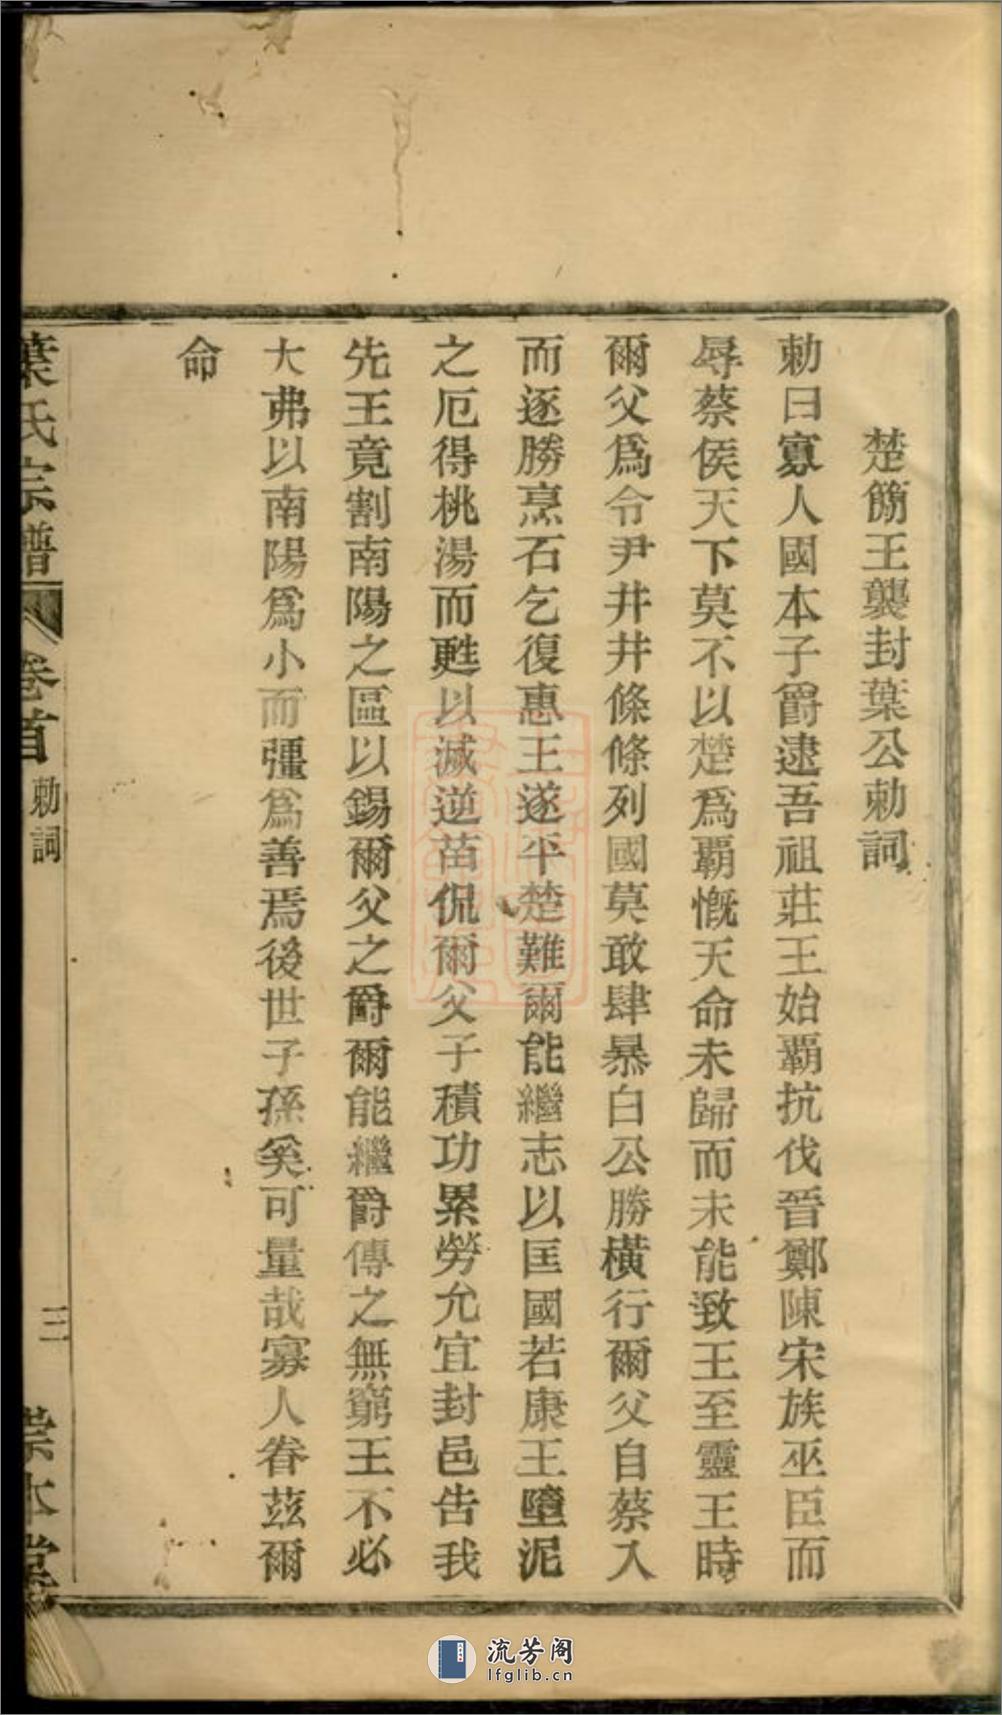 楚簡王襲封葉公勅詞
勅曰寡人國本子爵逮吾祖莊王始覇抗伐晉鄭陳宋族巫臣而
辱蔡侯天下莫不以楚爲覇慨天命未歸而未能致王至靈王時
爾父爲令尹井井條條列國莫敢肆暴白公勝橫行爾父自蔡入
而逐勝烹石乞復惠王遂平楚難爾能繼志以匡國若康王墮泥
之厄得桃湯而甦以滅逆苗侃爾父子積功累勞允宜封邑告我
先王竟割南陽之區以錫爾父之爵爾能繼爵傳之無窮王不必
大弗以南陽爲小而彊爲善焉後世子孫奚可量哉寡人眷茲爾
命
葉氏宗譜 卷首 勅詞 三 崇本堂
流芳阁
lfglib.cn